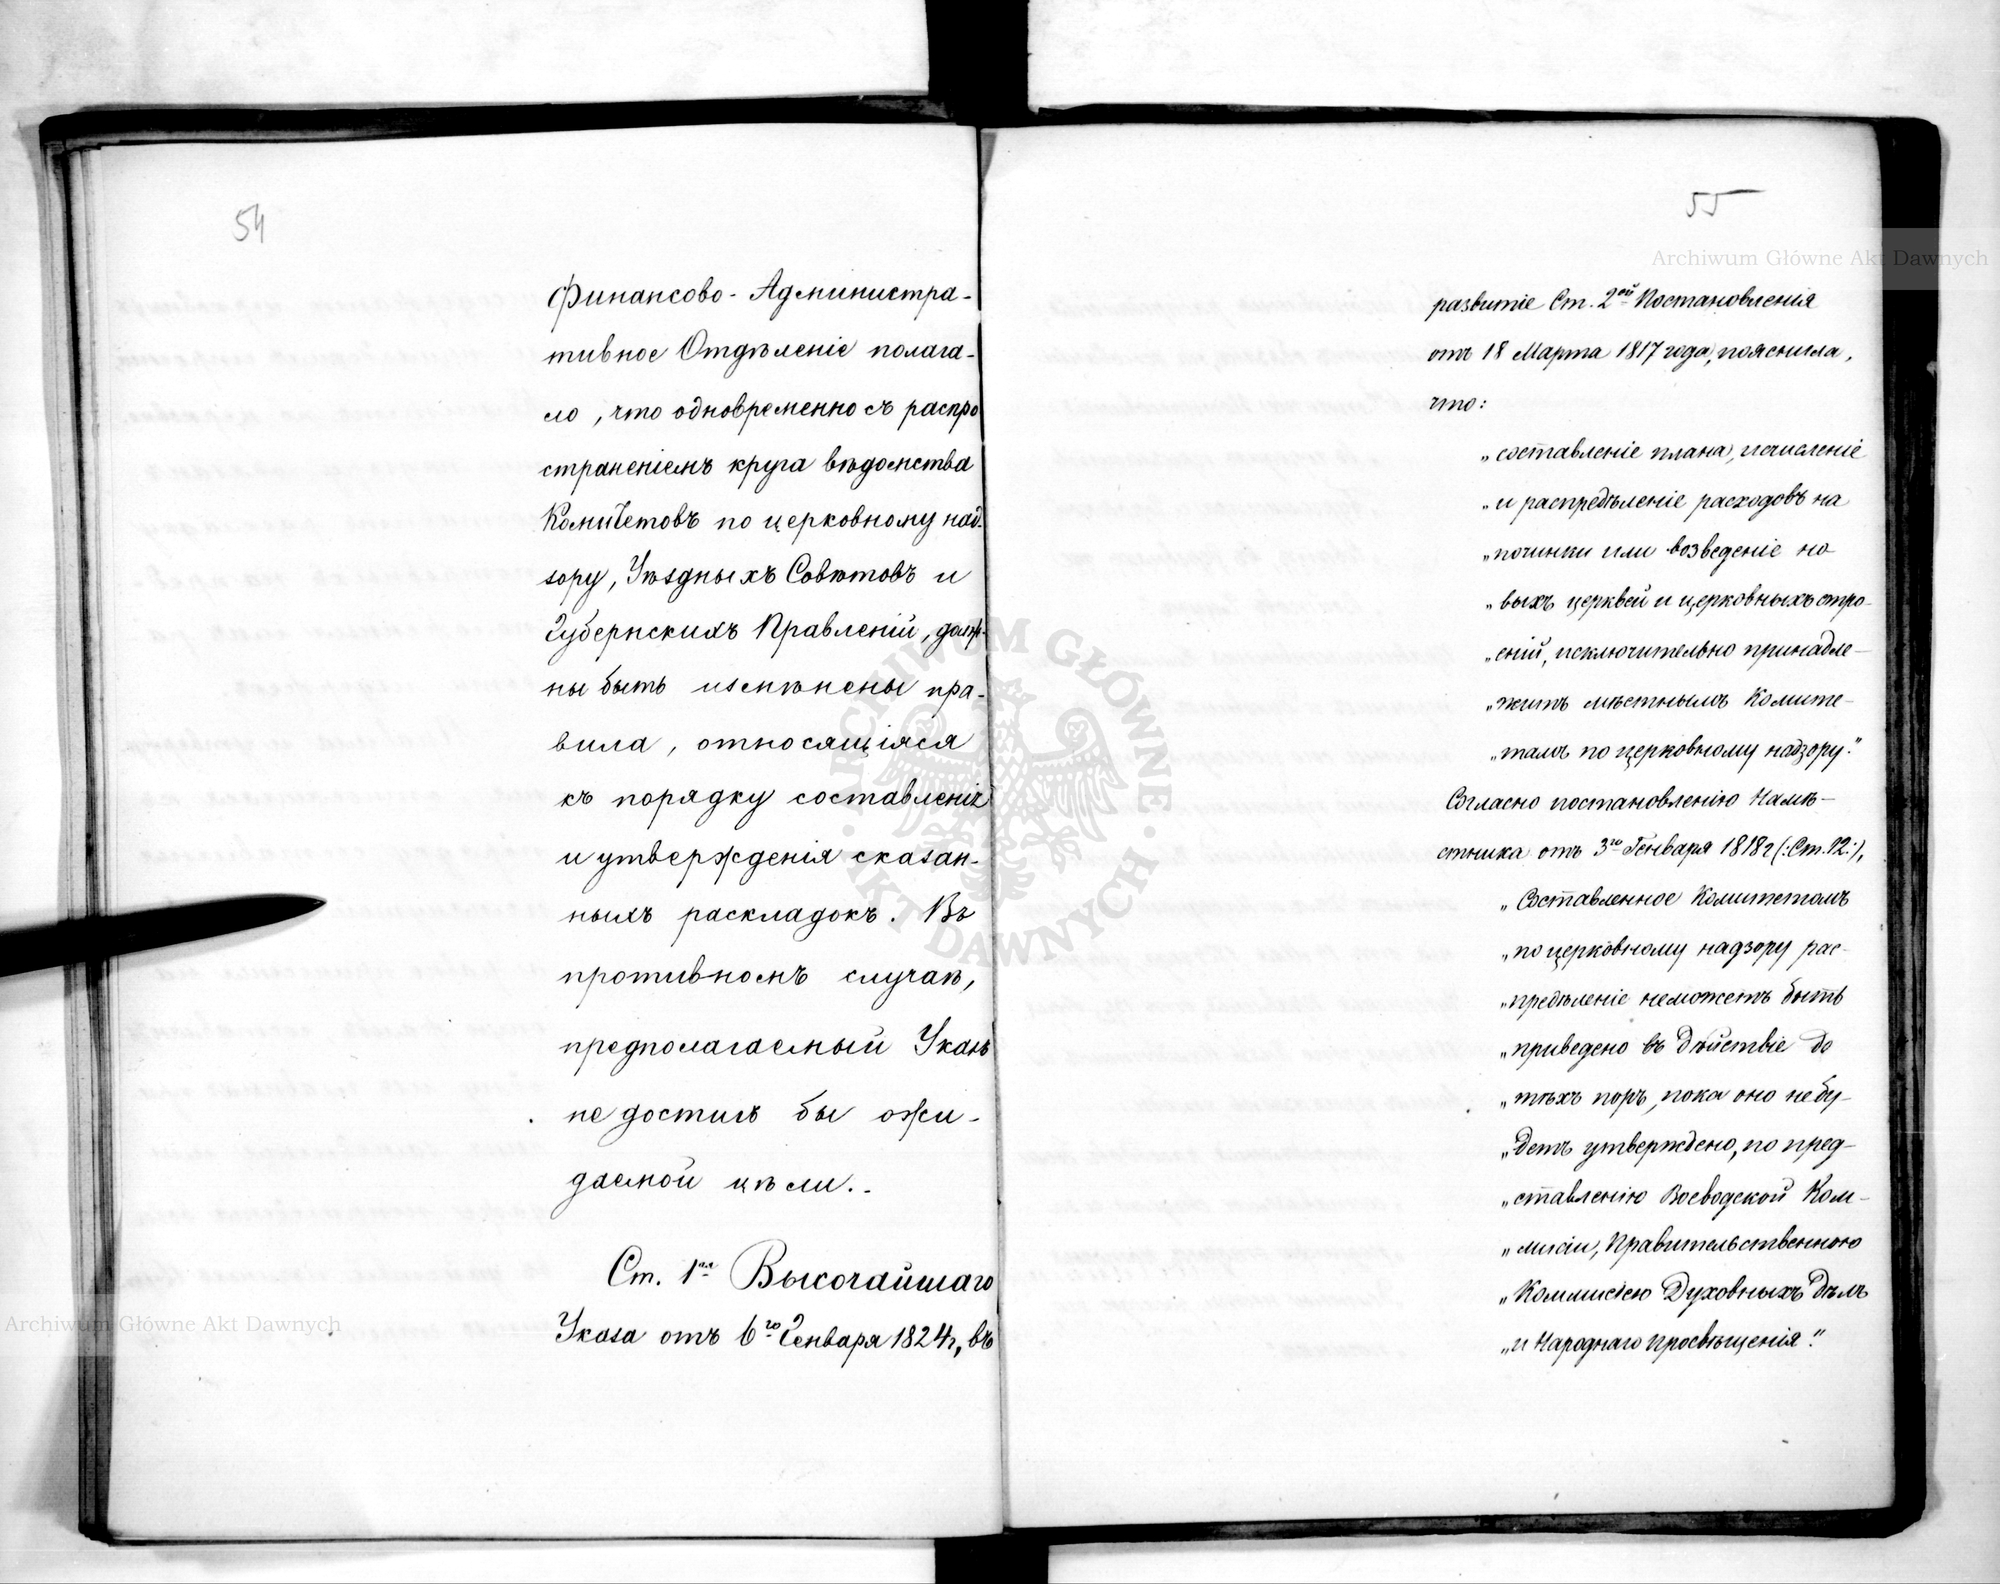 54
Финансово-Администра-
тивное Отдѣленіе полага-
ло, что одновременно съ распро
страненіемъ круга вѣдомства
Комитетовъ по церковному над-
зору, Уѣздныхъ Совѣтовъ и
Губернскихъ Правленій, долж-
ны быть измѣнены пра-
вила, относящіяся
къ порядку составленія
и утвержденія сказан-
ныхъ раскладокъ. Въ
противномъ случаѣ,
предполагаемый Указъ
не достигъ бы ожи-
даемой цѣли.-
Ст. 1ая Высочайшаго
Указа отъ 6го Генваря 1824г, въ
55
развитіе Ст. 2ой Постановленія
отъ 18 Марта 1817 года, пояснила,
что:
„составленіе плана, исчисленіе
„и распредѣленіе расходовъ на
„починки или возведеніе но
„выхъ церквей и церковныхъ стро-
„еній, исключительно принадле-
„житъ мѣстнымъ Комите-
„тамъ по церковному надзору."
Согласно постановленію Намѣ-
стника отъ 3го Генваря 1818г (:Ст. 12:),
„Составленное Комитетомъ
„по церковному надзору рас-
„предѣленіе неможетъ быть
„приведено въ дѣйствіе до
„тѣхъ поръ, пока оно небу-
„детъ утверждено, по пред-
„ставленію Воеводской Ком-
„мисіи, Правительственною
„Коммисіею Духовныхъ дѣлъ
„и Народнаго просвѣщенія."
Archiwum Główne Akt Dawnych
Archiwum Główne Akt Dawnych
ARCHIWUM GŁÓWNE
AKT DAWNYCH